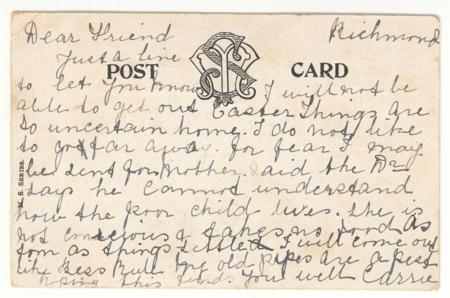 Dear Friend Richmond
Just a line
POST CARD
to let you know I will not be
able to get out Easter Things are
so uncertain home. I do not like
to got far away. for fear I may
be sent for. Mother said the Dr
says he cannot understand
how the poor child lives. She is
not conscious & takes no food As
soon as things settled I will come out
like Bess Rule the old pipes are a pest
hoping this finds you well Carrie
M. S. SERIES.